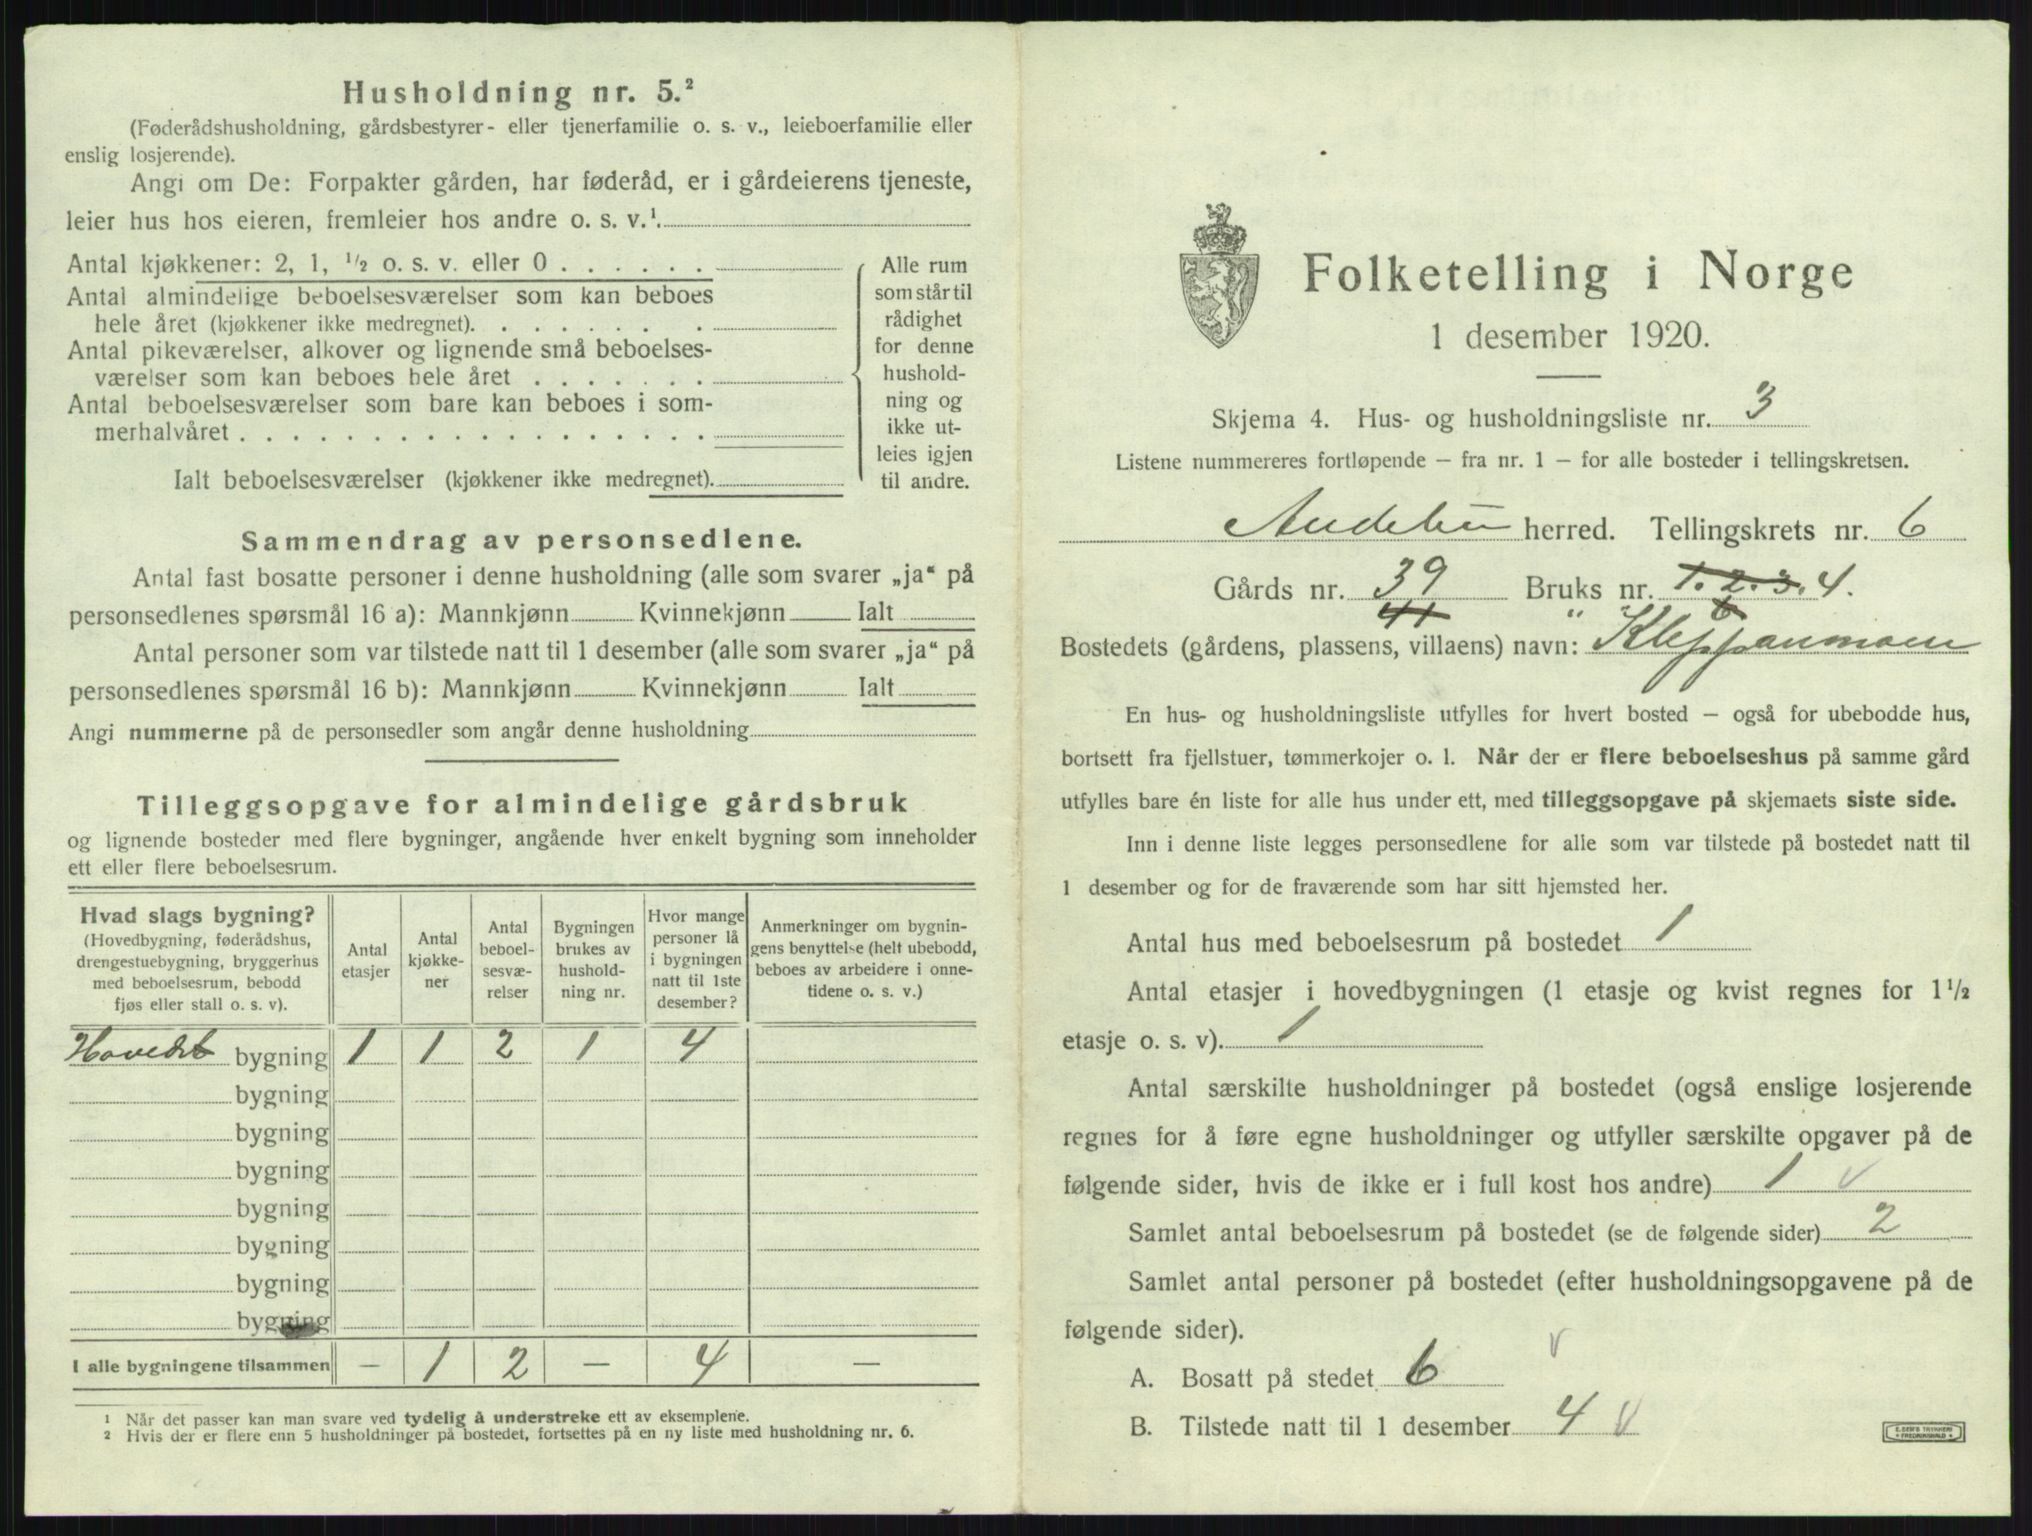 Husholdning nr. 5.²
(Føderådshusholdning, gårdsbestyrer- eller tjenerfamilie o. s. v., leieboerfamilie eller
enslig losjerende).
Angi om De: Forpakter gården, har føderåd, er i gårdeierens tjeneste,
leier hus hos eieren, fremleier hos andre o. s. v.¹.
Antal kjøkkener: 2, 1, ½ o. s. v. eller 0 . . . . . .
Antal almindelige beboelsesværelser som kan beboes
hele året (kjøkkener ikke medregnet). . . . . . . .
Antal pikeværelser, alkover og lignende små beboelses-
værelser som kan beboes hele året . . . . . . .
Antal beboelsesværelser som bare kan beboes i som-
merhalvåret . . . . . . . . . . . . . . . . . .
Ialt beboelsesværelser (kjøkkener ikke medregnet).
Alle rum
som står til
rådighet
for denne
hushold-
ning og
ikke ut-
leies igjen
til andre.
Sammendrag av personsedlene.
Antal fast bosatte personer i denne husholdning (alle som svarer „ja“ på
personsedlenes spørsmål 16 a): Mannkjønn Kvinnekjønn Ialt
Antal personer som var tilstede natt til 1 desember (alle som svarer „ja“ på
personsedlenes spørsmål 16 b): Mannkjønn Kvinnekjønn Ialt
Angi nummerne på de personsedler som angår denne husholdning
Tilleggsopgave for almindelige gårdsbruk
og lignende bosteder med flere bygninger, angående hver enkelt bygning som inneholder
ett eller flere beboelsesrum.
Hvad slags bygning?
(Hovedbygning, føderådshus,
drengestuebygning, bryggerhus
med beboelsesrum, bebodd
fjøs eller stall o. s. v).
Antal
etasjer
Antal
kjøkke-
ner
Antal
beboel-
sesvæ-
relser
Bygningen
brukes av
hushold-
ning nr.
Hvor mange
personer lå
i bygningen
natt til 1ste
desember?
Anmerkninger om bygnin-
gens benyttelse (helt ubebodd,
beboes av arbeidere i onne-
tidene o. s. v.)
bygning 1 1 2 1 4
bygning
bygning
bygning
bygning
bygning
bygning
bygning
I alle bygningene tilsammen — 1 2 — 4 —
1 Når det passer kan man svare ved tydelig å understreke ett av eksemplene.
2 Hvis der er flere enn 5 husholdninger på bostedet, fortsettes på en ny liste med husholdning nr. 6.
Folketelling i Norge
1 desember 1920.
Skjema 4. Hus- og husholdningsliste nr. 3
Listene nummereres fortløpende – fra nr. 1 – for alle bosteder i tellingskretsen.
Andebu herred. Tellingskrets nr. 6
Gårds nr. 39 Bruks nr. 1. 2. 3. 4.
41 " 6
Bostedets (gårdens, plassens, villaens) navn: Kleppanmoen
En hus- og husholdningsliste utfylles for hvert bosted – også for ubebodde hus,
bortsett fra fjellstuer, tømmerkojer o. l. Når der er flere beboelseshus på samme gård
utfylles bare én liste for alle hus under ett, med tilleggsopgave på skjemaets siste side.
Inn i denne liste legges personsedlene for alle som var tilstede på bostedet natt til
1 desember og for de fraværende som har sitt hjemsted her.
Antal hus med beboelsesrum på bostedet 1
Antal etasjer i hovedbygningen (1 etasje og kvist regnes for 1½
etasje o. s. v). 1
Antal særskilte husholdninger på bostedet (også enslige losjerende
regnes for å føre egne husholdninger og utfyller særskilte opgaver på de
følgende sider, hvis de ikke er i full kost hos andre) 1 v
Samlet antal beboelsesrum på bostedet (se de følgende sider) 2
Samlet antal personer på bostedet (efter husholdningsopgavene på de
følgende sider).
v
A. Bosatt på stedet 6
B. Tilstede natt til 1 desember 4 v